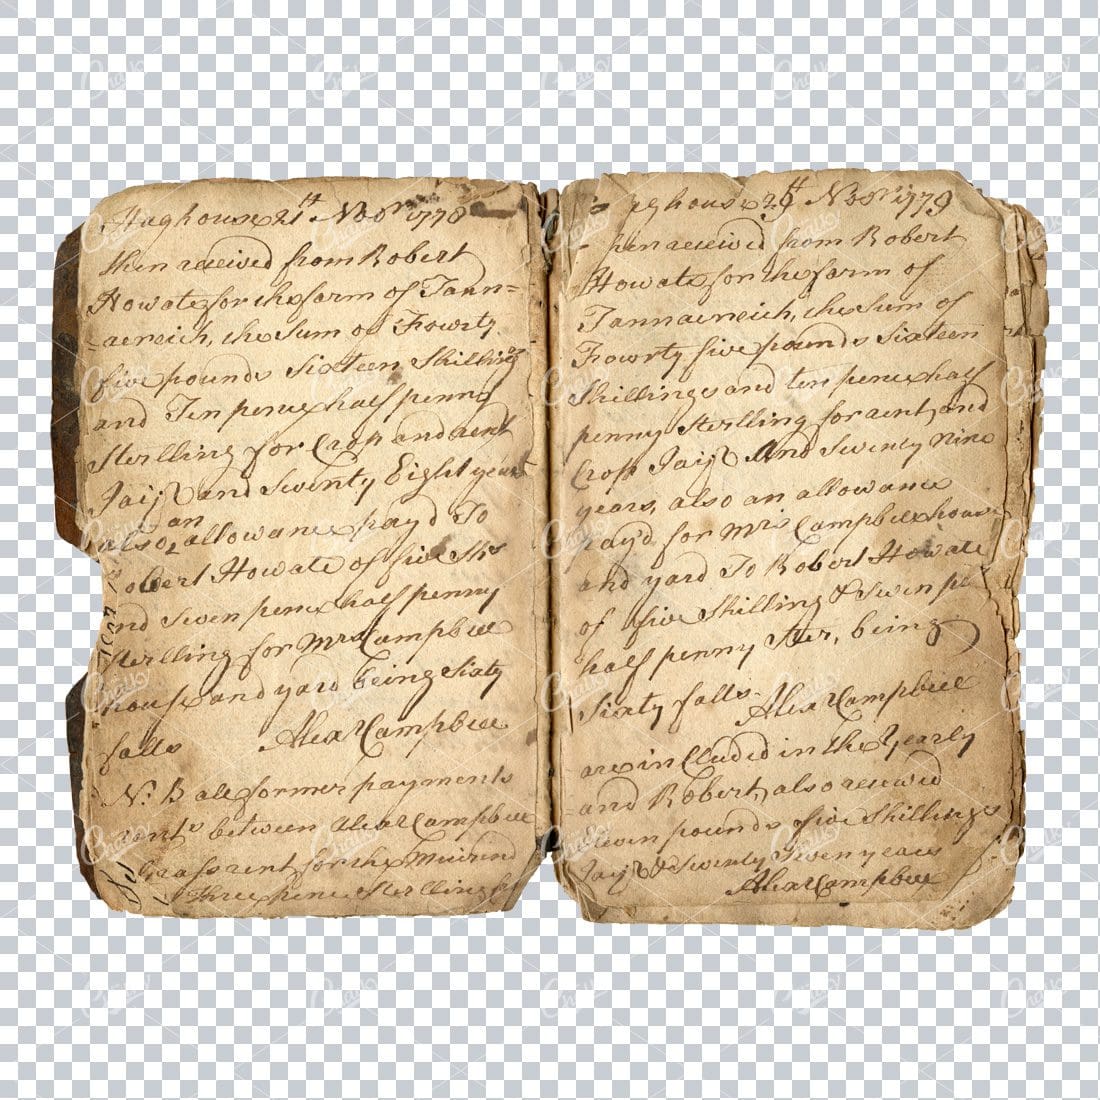 Haghouse 21st Nobr 1778
then received from Robert
Howate for the farm of Tann=
=aereich, the Sum of Fowrty
five pounds Sixteen Shillings
and Ten pence half penny
Sterlling for Crop and rent
Jaiji and Seventy Eight years
also, an allowance payd To
Robert Howate of five Shs
and Seven pence half penny
Sterlling for Mrs Campbell
house and yard being Sixty
falls Alexr Campbell
N. B all former payments
between Alexr Campbell
Grass rent for the Muirend
Three pence Sterlling
house 29th Nobr 1779
then received from Robert
Howate for the farm of
Tannaereich, the Sum of
Fowrty five pounds Sixteen
Shillings and ten pence half
penny Sterlling for rent and
Crop Jaiji And Seventy Nine
years, also an allowance
payd for Mrs Campbell house
and yard To Robert Howate
of five Shilling & Seven
half penny Ster, being
Sixty falls Alexr Campbell
are in Cluded in the Yearly
and Robert, also received
Seven pounds five Shillings
Jaiji & Seventy Seven years
Alexr Campbell
Chalky